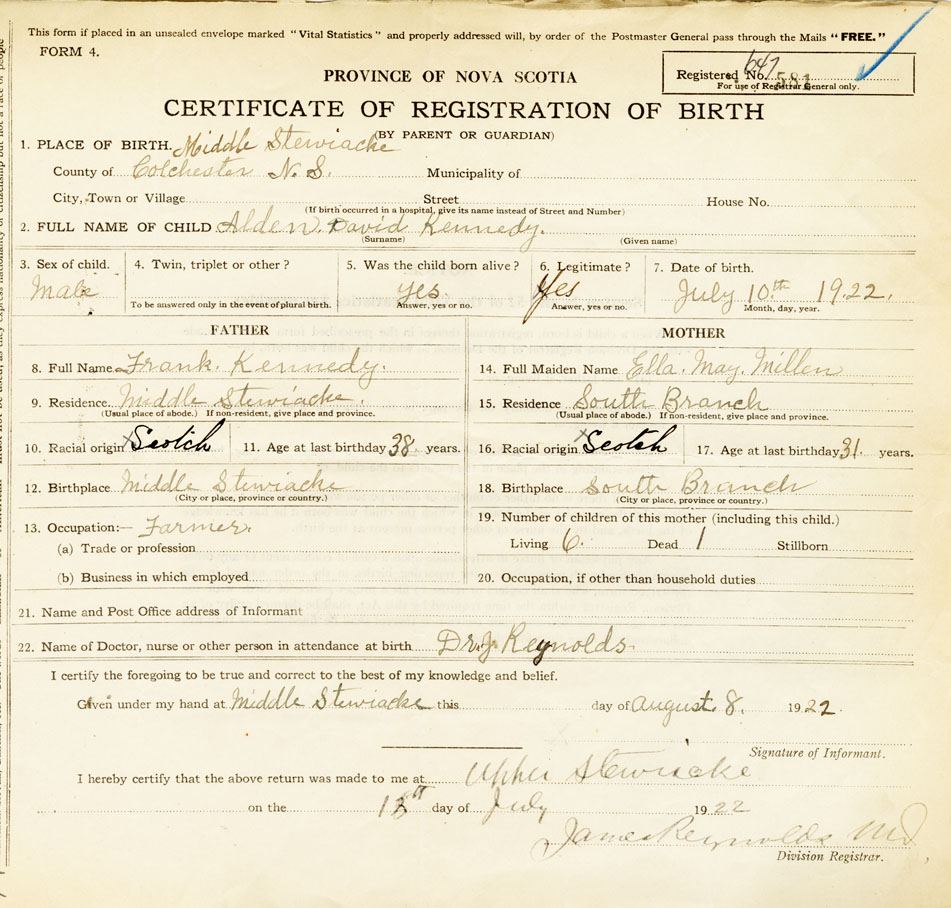 This form if placed in an unsealed envelope marked "Vital Statistics" and properly addressed will, by order of the Postmaster General pass through the Mails "FREE."
FORM 4.
PROVINCE OF NOVA SCOTIA
Registered No. 647 581
For use of Registrar General only.
CERTIFICATE OF REGISTRATION OF BIRTH
(BY PARENT OR GUARDIAN)
1. PLACE OF BIRTH. Middle Stewiacke
County of Colchester N. S. Municipality of
City, Town or Village Street House No.
(If birth occurred in a hospital, give its name instead of Street and Number)
2. FULL NAME OF CHILD Alden David Kennedy.
(Surname) (Given name)
3. Sex of child. 4. Twin, triplet or other? 5. Was the child born alive? 6. Legitimate? 7. Date of birth.
Male yes. Yes July 10th 1922.
To be answered only in the event of plural birth. Answer, yes or no. Answer, yes or no. Month, day, year.
FATHER MOTHER
8. Full Name Frank Kennedy. 14. Full Maiden Name Ella May Millen
9. Residence Middle Stewiacke. 15. Residence South Branch
(Usual place of abode.) If non-resident, give place and province. (Usual place of abode.) If non-resident, give place and province.
10. Racial origin Scotch 11. Age at last birthday 38 years. 16. Racial origin Scotch 17. Age at last birthday 31. years.
12. Birthplace Middle Stewiacke 18. Birthplace South Branch
(City or place, province or country.) (City or place, province or country.)
13. Occupation:— Farmer. 19. Number of children of this mother (including this child.)
(a) Trade or profession Living 6. Dead 1 Stillborn
(b) Business in which employed 20. Occupation, if other than household duties
21. Name and Post Office address of Informant
22. Name of Doctor, nurse or other person in attendance at birth Dr. J. Reynolds.
I certify the foregoing to be true and correct to the best of my knowledge and belief.
Given under my hand at Middle Stewiacke this day of August. 8. 1922.
Signature of Informant.
I hereby certify that the above return was made to me at Upper Stewiacke
on the 18th day of July 1922
James Reynolds MD.
Division Registrar.